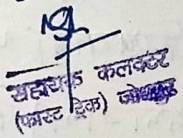 सहायक कलक्टर
(फास्ट ट्रेक) जोधपुर